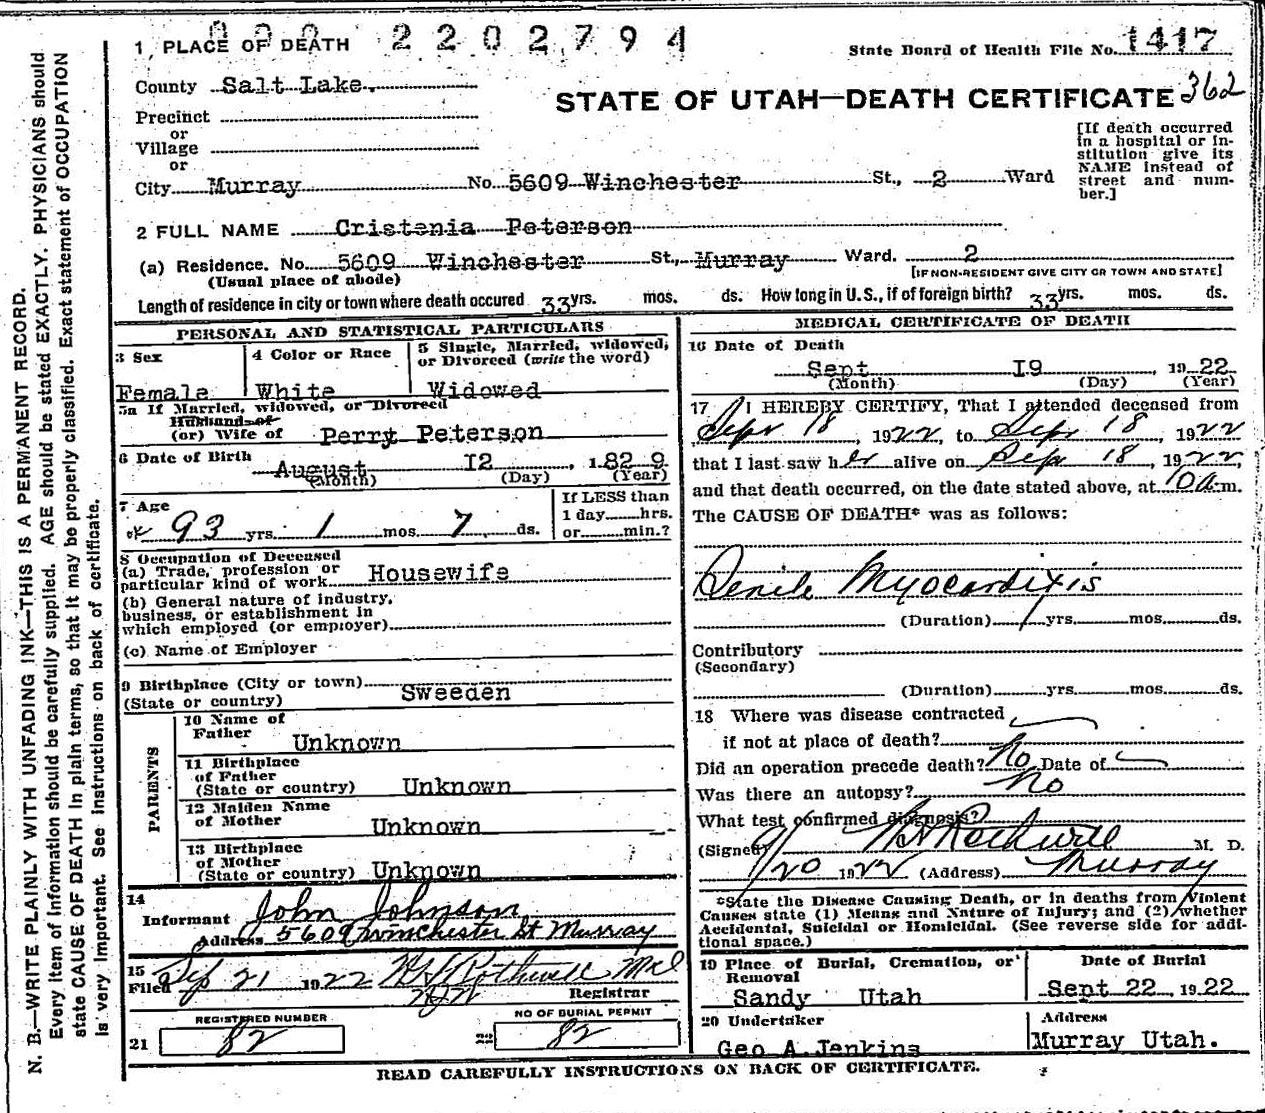 2202794
1 PLACE OF DEATH
State Board of Health File No. 1417
County Salt Lake.
STATE OF UTAH—DEATH CERTIFICATE 362
Precinct
or
Village
or
City Murray No. 5609 Winchester St., 2 Ward
[If death occurred
in a hospital or in-
stitution give its
NAME instead of
street and num-
ber.]
2 FULL NAME Cristenia Peterson
(a) Residence. No. 5609 Winchester St., Murray Ward. 2
(Usual place of abode)
[IF NON-RESIDENT GIVE CITY OR TOWN AND STATE]
Length of residence in city or town where death occured 33 yrs. mos. ds. How long in U. S., if of foreign birth? 33 yrs. mos. ds.
PERSONAL AND STATISTICAL PARTICULARS
3 Sex
Female
4 Color or Race
White
5 Single, Married, widowed,
or Divorced (write the word)
Widowed
5a If Married, widowed, or Divorced
Husband of
(or) Wife of Perry Peterson
6 Date of Birth August I2, 1829
(Month) (Day) (Year)
7 Age
93 yrs. 1 mos. 7 ds.
If LESS than
1 day hrs.
or min.?
8 Occupation of Deceased
(a) Trade, profession or
particular kind of work Housewife
(b) General nature of industry,
business, or establishment in
which employed (or employer)
(c) Name of Employer
9 Birthplace (City or town)
(State or country) Sweeden
PARENTS
10 Name of
Father Unknown
11 Birthplace
of Father
(State or country) Unknown
12 Maiden Name
of Mother Unknown
13 Birthplace
of Mother
(State or country) Unknown
14
Informant John Johnson
Address 5609 Winchester St Murray
15
Filed Sep 21 1922 H N Rothwell Md
Registrar
21
REGISTERED NUMBER
82
22
NO OF BURIAL PERMIT
82
MEDICAL CERTIFICATE OF DEATH
16 Date of Death
Sept I9, 1922
(Month) (Day) (Year)
17 I HEREBY CERTIFY, That I attended deceased from
Sept 18, 1922, to Sept 18, 1922
that I last saw her alive on Sep 18, 1922,
and that death occurred, on the date stated above, at 10 a.m.
The CAUSE OF DEATH* was as follows:
Senile Myocardixis
(Duration) 1 yrs. mos. ds.
Contributory
(Secondary)
(Duration) yrs. mos. ds.
18 Where was disease contracted
if not at place of death?
Did an operation precede death? No Date of
Was there an autopsy? No
What test confirmed diagnosis?
(Signed) Rothwell M. D.
9/20 1922 (Address) Murray
*State the Disease Causing Death, or in deaths from Violent
Causes state (1) Means and Nature of Injury; and (2) whether
Accidental, Suicidal or Homicidal. (See reverse side for addi-
tional space.)
19 Place of Burial, Cremation, or
Removal
Sandy Utah
Date of Burial
Sept 22, 1922
20 Undertaker
Geo A. Jenkins
Address
Murray Utah.
READ CAREFULLY INSTRUCTIONS ON BACK OF CERTIFICATE.
N. B.—WRITE PLAINLY WITH UNFADING INK—THIS IS A PERMANENT RECORD.
Every item of information should be carefully supplied. AGE should be stated EXACTLY. PHYSICIANS should
state CAUSE OF DEATH in plain terms, so that it may be properly classified. Exact statement of OCCUPATION
is very important. See instructions on back of certificate.